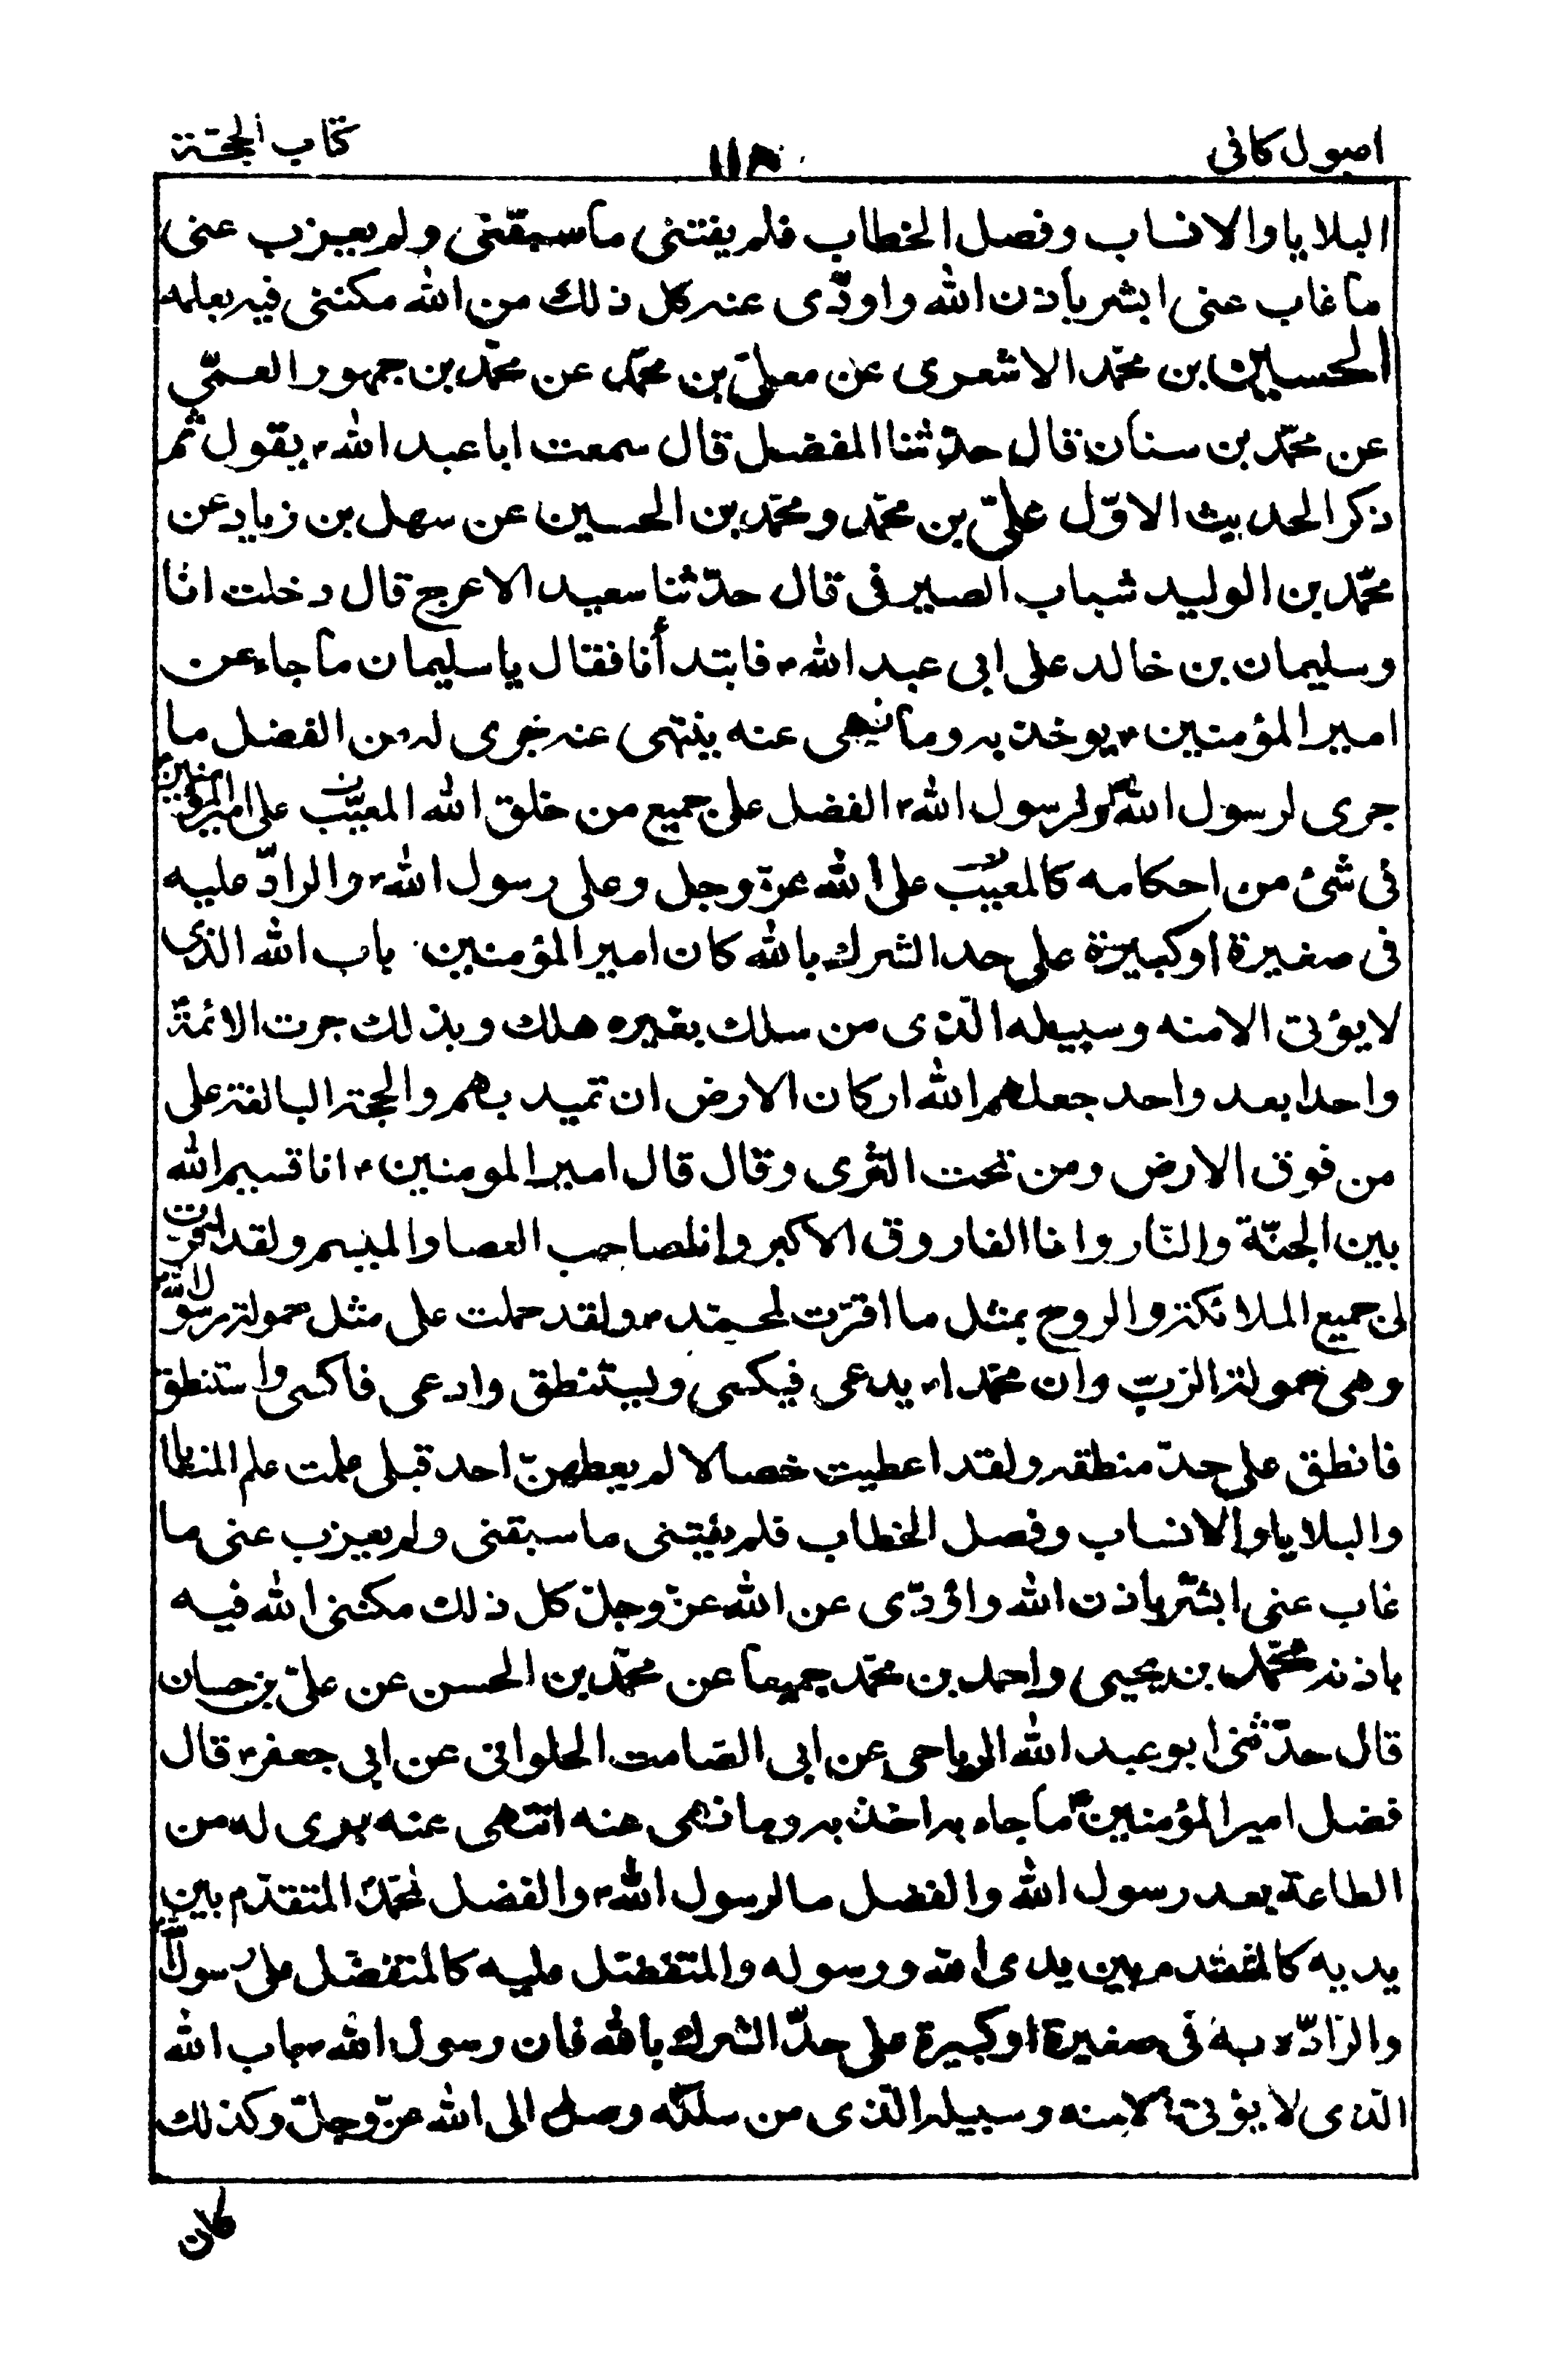 اصول كافى
كتاب الحجة
البلايا والانساب وفصل الخطاب فلم يفتنى ما سبقنى ولم يعزب عنى
ما غاب عنى ابشر باذن الله واودّى عنه كل ذلك من الله مكننى فيه بعلمه
الحسين بن محمّد الاشعرى عن معلىّ بن محمّد عن محمّد بن جمهور العمّى
عن محمّد بن سنان قال حدّثنا المفضل قال سمعت ابا عبد الله ؑ يقول ثم
ذكر الحديث الاوّل علىّ بن محمّد ومحمّد بن الحسين عن سهل بن زياد عن
محمّد بن الوليد شباب الصيرفى قال حدّثنا سعيد الاعرج قال دخلت انا
وسليمان بن خالد على ابى عبد الله ؑ فابتدأنا فقال يا سليمان ما جاء عن
امير المؤمنين ؑ يوخذ به وما نهى عنه ينتهى عنه جرى له من الفضل ما
جرى لرسول الله ؐ ولرسول الله ؐ الفضل على جميع من خلق الله المعيّب على امير المؤمنين
فى شئ من احكامه كالمعيّب على الله عزوجل وعلى رسول الله ؐ والرادّ عليه
فى صغيرة او كبيرة على حد الشرك بالله كان امير المؤمنين باب الله الذى
لا يؤتى الا منه وسبيله الّذى من سلك بغيره هلك وبذلك جرت الائمة ؑ
واحدا بعد واحد جعلهم الله اركان الارض ان تميد بهم والحجة البالغة على
من فوق الارض ومن تحت الثرى وقال قال امير المومنين ؑ انا قسيم الله
بين الجنّة والنّار وانا الفاروق الاكبر وانا صاحب العصا والميسم ولقد اقرّت
لى جميع الملائكة والروح بمثل ما اقرّت لمحمّد ؐ ولقد حملت على مثل حمولة رسول الله ؐ
وهى حمولة الربّ وان محمّدا ؐ يدعى فيكسى ويستنطق وادعى فاكسى واستنطق
فانطق على حدّ منطقه ولقد اعطيت خصالا لم يعطهنّ احد قبلى علمت علم المنايا
والبلايا والانساب وفصل الخطاب فلم يفتنى ما سبقنى ولم يعزب عنى ما
غاب عنى ابشّر باذن الله واؤدّى عن الله عزّوجلّ كل ذلك مكننى الله فيه
باذنه محمّد بن يحيى واحمد بن محمّد جميعا عن محمّد بن الحسن عن علىّ بن حسان
قال حدّثنى ابو عبد الله الرياحى عن ابى الصّامت الحلوانى عن ابى جعفر ؑ قال
فضل امير المؤمنين ؑ ما جاء به اخذ به وما نهى عنه انتهى عنه جرى له من
الطاعة بعد رسول الله والفضل ما لرسول الله ؐ والفضل لمحمّد ؐ المتقدّم بين
يديه كالمتقدم بين يدى الله ورسوله والمتفضّل عليه كالمتفضّل على رسول الله ؐ
والرادّ به فى صغيرة او كبيرة على حدّ الشرك بالله فان رسول الله ؐ باب الله
الّذى لا يؤتى الا منه وسبيله الّذى من سلكه وصل الى الله عزّوجلّ وكذلك
كان